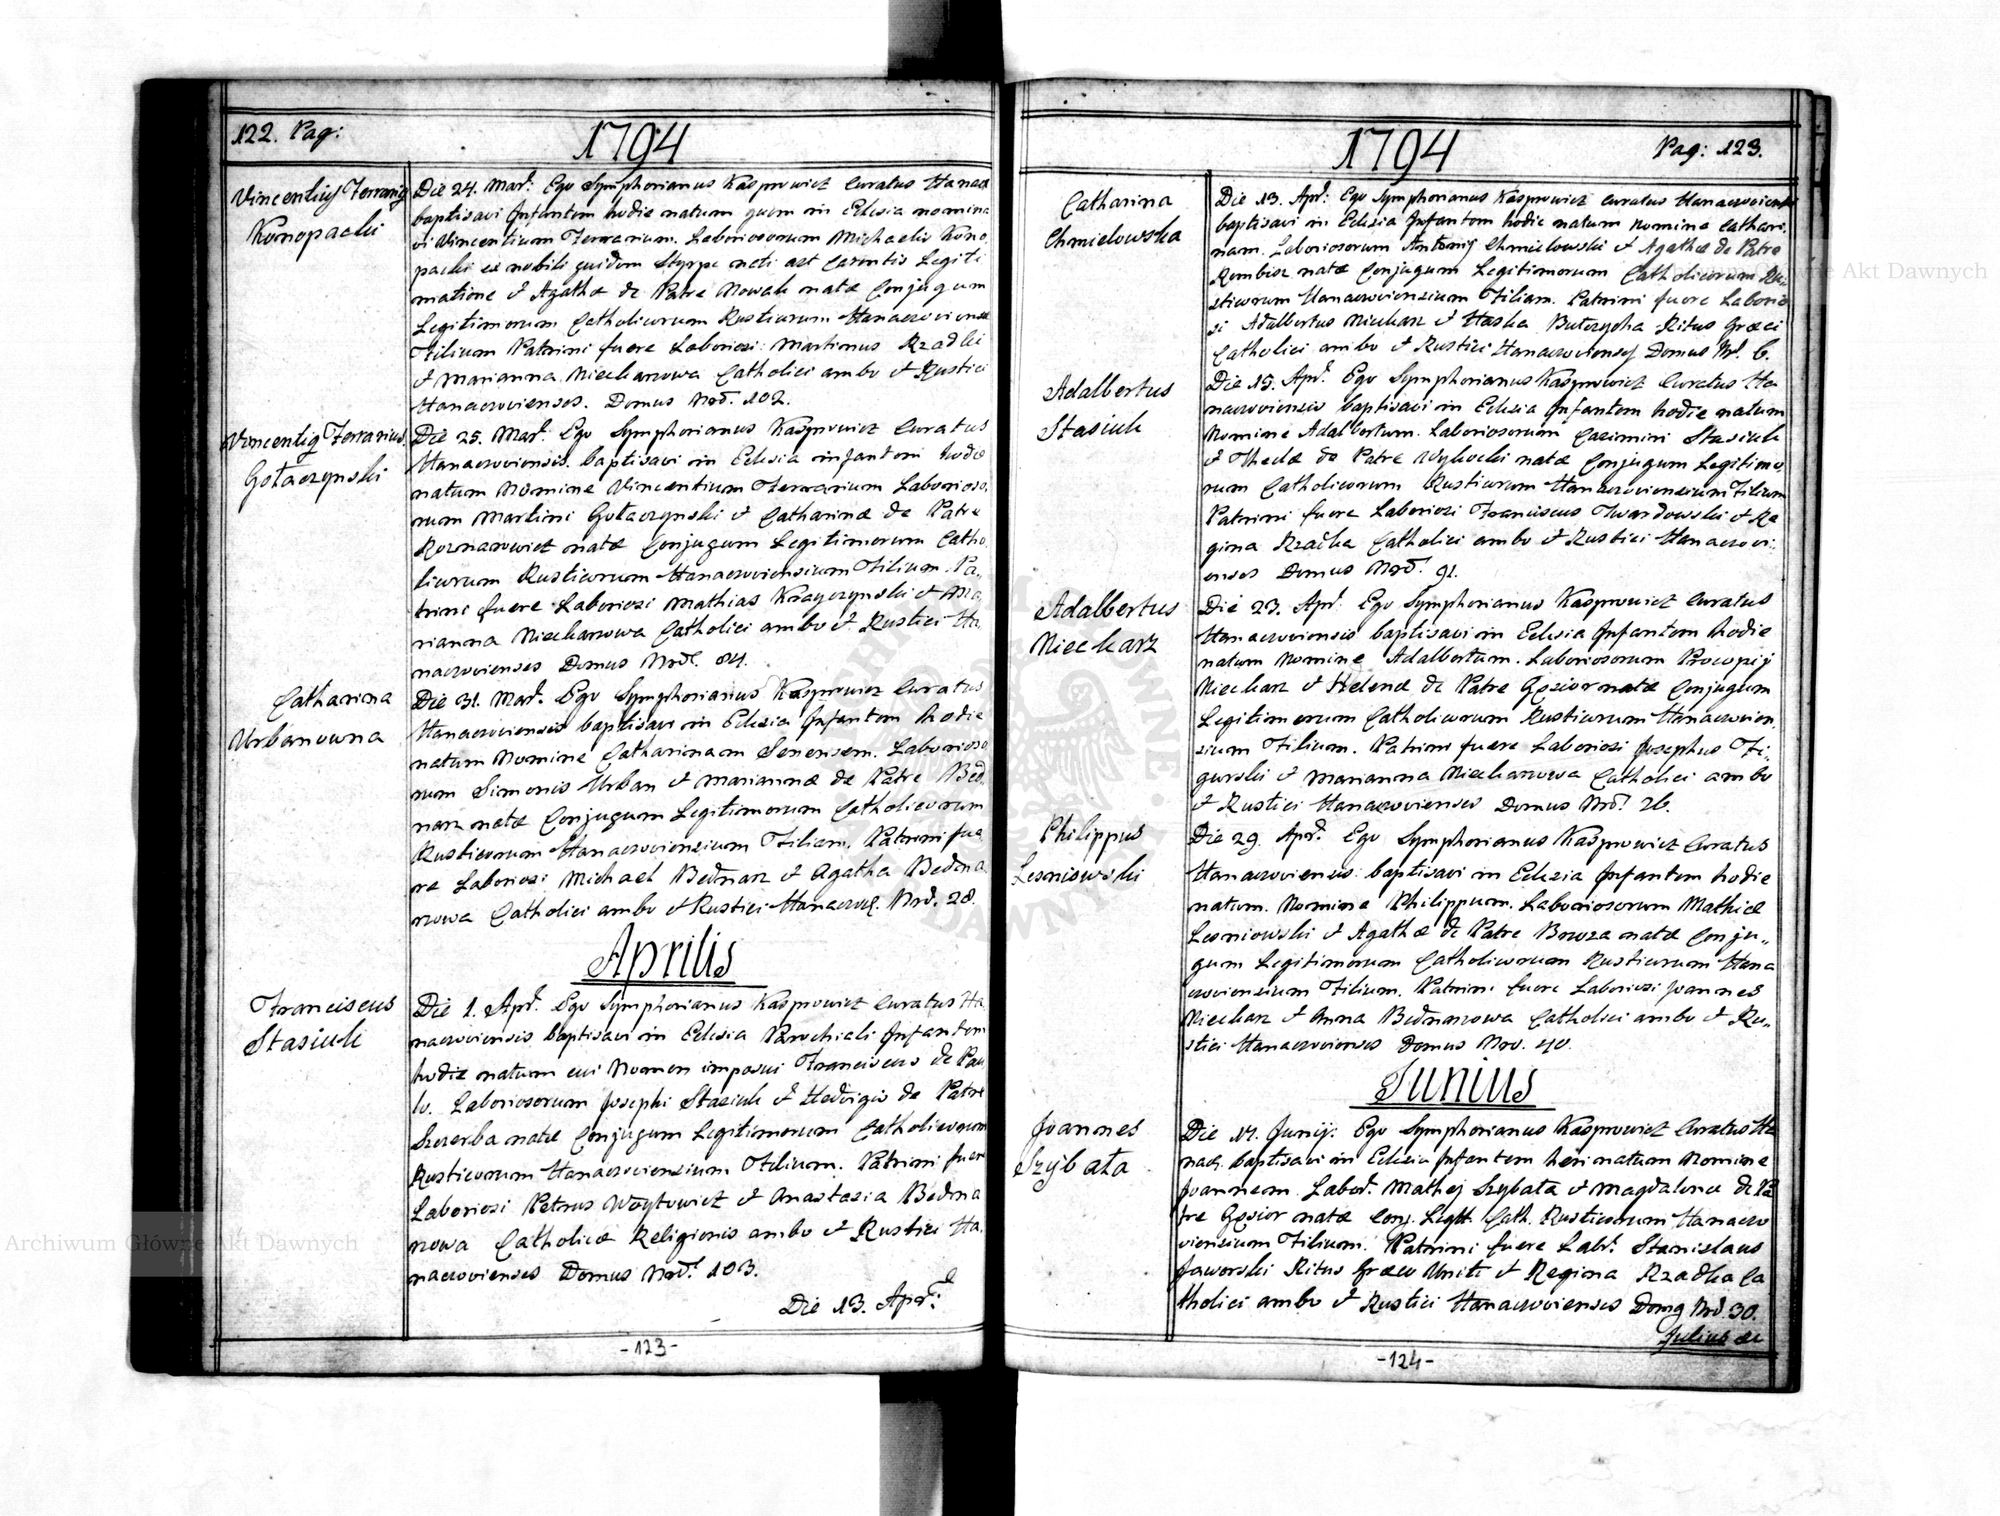 122. Pag:
1794
Vincentius Ferrarius
Konopacki
Die 24. Mart: Ego Symphorianus Kasprowicz Curatus Hanacz
baptisavi Infantem hodie natum quem in Eclesia nomina
vi Vincentium Ferrarium. Laboriosorum Michaelis Kono
packi ex nobili quidem Styrpe nati ast Carentis Legiti
matione et Agathæ de Patre Nowak natæ Conjugum
Legitimorum Catholicorum Rusticorum Hanaczoviensiu
Filium Patrini fuere Laboriosi: Martinus Rzadki
et Marianna Nieckarzowa Catholici ambo et Rustici
Hanaczovienses. Domus Nrō. 102.
Vincentius Ferrarius
Gołaczynski
Die 25. Mart. Ego Symphorianus Kasprowicz Curatus
Hanaczoviensis. baptisavi in Eclesia infantem hodie
natum Nomine Vincentium Ferrarium Laborioso,
rum Martini Gołaczynski et Catharinæ de Patre
Roznarowicz natæ Conjugum Legitimorum Catho
licorum Rusticorum Hanaczoviensium Filium. Pa,,
trini fuere Laboriosi Mathias Krayczynski et Ma,
rianna Nieckarzowa Catholici ambo et Rustici Ha,
naczovienses Domus Nrō. 84.
Catharina
Urbanowna
Die 31. Mart. Ego Symphorianus Kasprowicz Curatus
Hanaczoviensis baptisavi in Eclesia Infantem hodie
natum Nomine Catharinam Senensem. Laborioso
rum Simonis Urban et Mariannæ de Patre Bed
narz natæ Conjugum Legitimorum Catholicorum
Rusticorum Hanaczoviensium Filiam. Patrini fue
re Laboriosi Michael Bednarz et Agatha Bedna
rzowa Catholici ambo et Rustici Hanaczov. Nrō. 28.
Aprilis
Franciscus
Stasiuk
Die 1. Apr. Ego Symphorianus Kasprowicz Curatus Ha
naczoviensis baptisavi in Eclesia Parochiali Infantem
hodie natum cui Nomen imposui Franciscus de Pau
lo. Laboriosorum Josephi Stasiuk et Hedvigis de Patre
Szczerba natæ Conjugum Legitimorum Catholicorum
Rusticorum Hanaczoviensium Filium. Patrini fuere
Laboriosi Petrus Woytowicz et Anastasia Bedna
rzowa Catholicæ Religionis ambo et Rustici Ha,
naczovienses Domus Nrō. 103.
Die 13. Apr:
-123-
1794
Pag: 123.
Catharina
Chmielowska
Die 13. Apr: Ego Symphorianus Kasprowicz Curatus Hanaczoviensis
baptisavi in Eclesia Infantem hodie natum Nomine Cathari,
nam. Laboriosorum Antonij Chmielowski et Agathæ de Patre
Rembisz natæ Conjugum Legitimorum Catholicorum Ru,,
sticorum Hanaczoviensium Filiam. Patrini fuere Laborio
si Adalbertus Nieckarz et Haska Butrycha Ritus Græci
Catholici ambo et Rustici Hanaczovienses Domus Nr. 6.
Adalbertus
Stasiuk
Die 15. Apr. Ego Symphorianus Kasprowicz Curatus Ha
naczoviensis baptisavi in Eclesia Infantem hodie natum
Nomine Adalbertum. Laboriosorum Casimiri Stasiuk
et Theclæ de Patre Wysocki natæ Conjugum Legitimo,
rum Catholicorum Rusticorum Hanaczoviensium Filium
Patrini fuere Laboriosi Franciscus Twardowski et Re
gina Rzadka Catholici ambo et Rustici Hanaczovi,
enses Domus Nrō. 91.
Adalbertus
Nieckarz
Die 23. Apr: Ego Symphorianus Kasprowicz Curatus
Hanaczoviensis baptisavi in Eclesia Infantem hodie
natum Nomine Adalbertum. Laboriosorum Procopij
Nieckarz et Helenæ de Patre Gąsior natæ Conjugum
Legitimorum Catholicorum Rusticorum Hanaczovien,
sium Filium. Patrini fuere Laboriosi Josephus Fi,
gurski et Marianna Nieckarzowa Catholici ambo
et Rustici Hanaczovienses Domus Nrō. 26.
Philippus
Lesniowski
Die 29. Apr. Ego Symphorianus Kasprowicz Curatus
Hanaczoviensis baptisavi in Eclesia Infantem hodie
natum. Nomine Philippum. Laboriosorum Mathiæ
Lesniowski et Agathæ de Patre natæ Conju,,
gum Legitimorum Catholicorum Rusticorum Hana
czoviensium Filium. Patrini fuere Laboriosi Joannes
Nieckarz et Anna Bednarzowa Catholici ambo et Ru,,
stici Hanaczovienses Domus Nro. 40.
Junius
Joannes
Szybała
Die 17. Junij. Ego Symphorianus Kasprowicz Curatus Ha
nacz. baptisavi in Eclesia Infantem heri natum Nomine
Joannem. Labor. Mathej Szybała et Magdalenæ de Pa
tre Gąsior natæ Conj. Legit. Cath. Rusticorum Hanaczo
viensium Filium. Patrini fuere Labr. Stanislaus
Jaworski Ritus Græco Uniti et Regina Rzadka Ca
tholici ambo et Rustici Hanaczovienses Domus Nrō. 30.
Julius
-124-
Archiwum Główne Akt Dawnych
Archiwum Główne Akt Dawnych